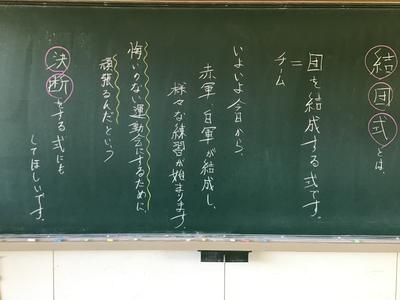 結団式とは、
団を結成する式です。
＝
チーム
いよいよ今日から、
赤軍、白軍が結成し、
様々な練習が始まります。
悔いのない運動会にするために、
頑張るんだという
決断をする式にも
してほしいです。